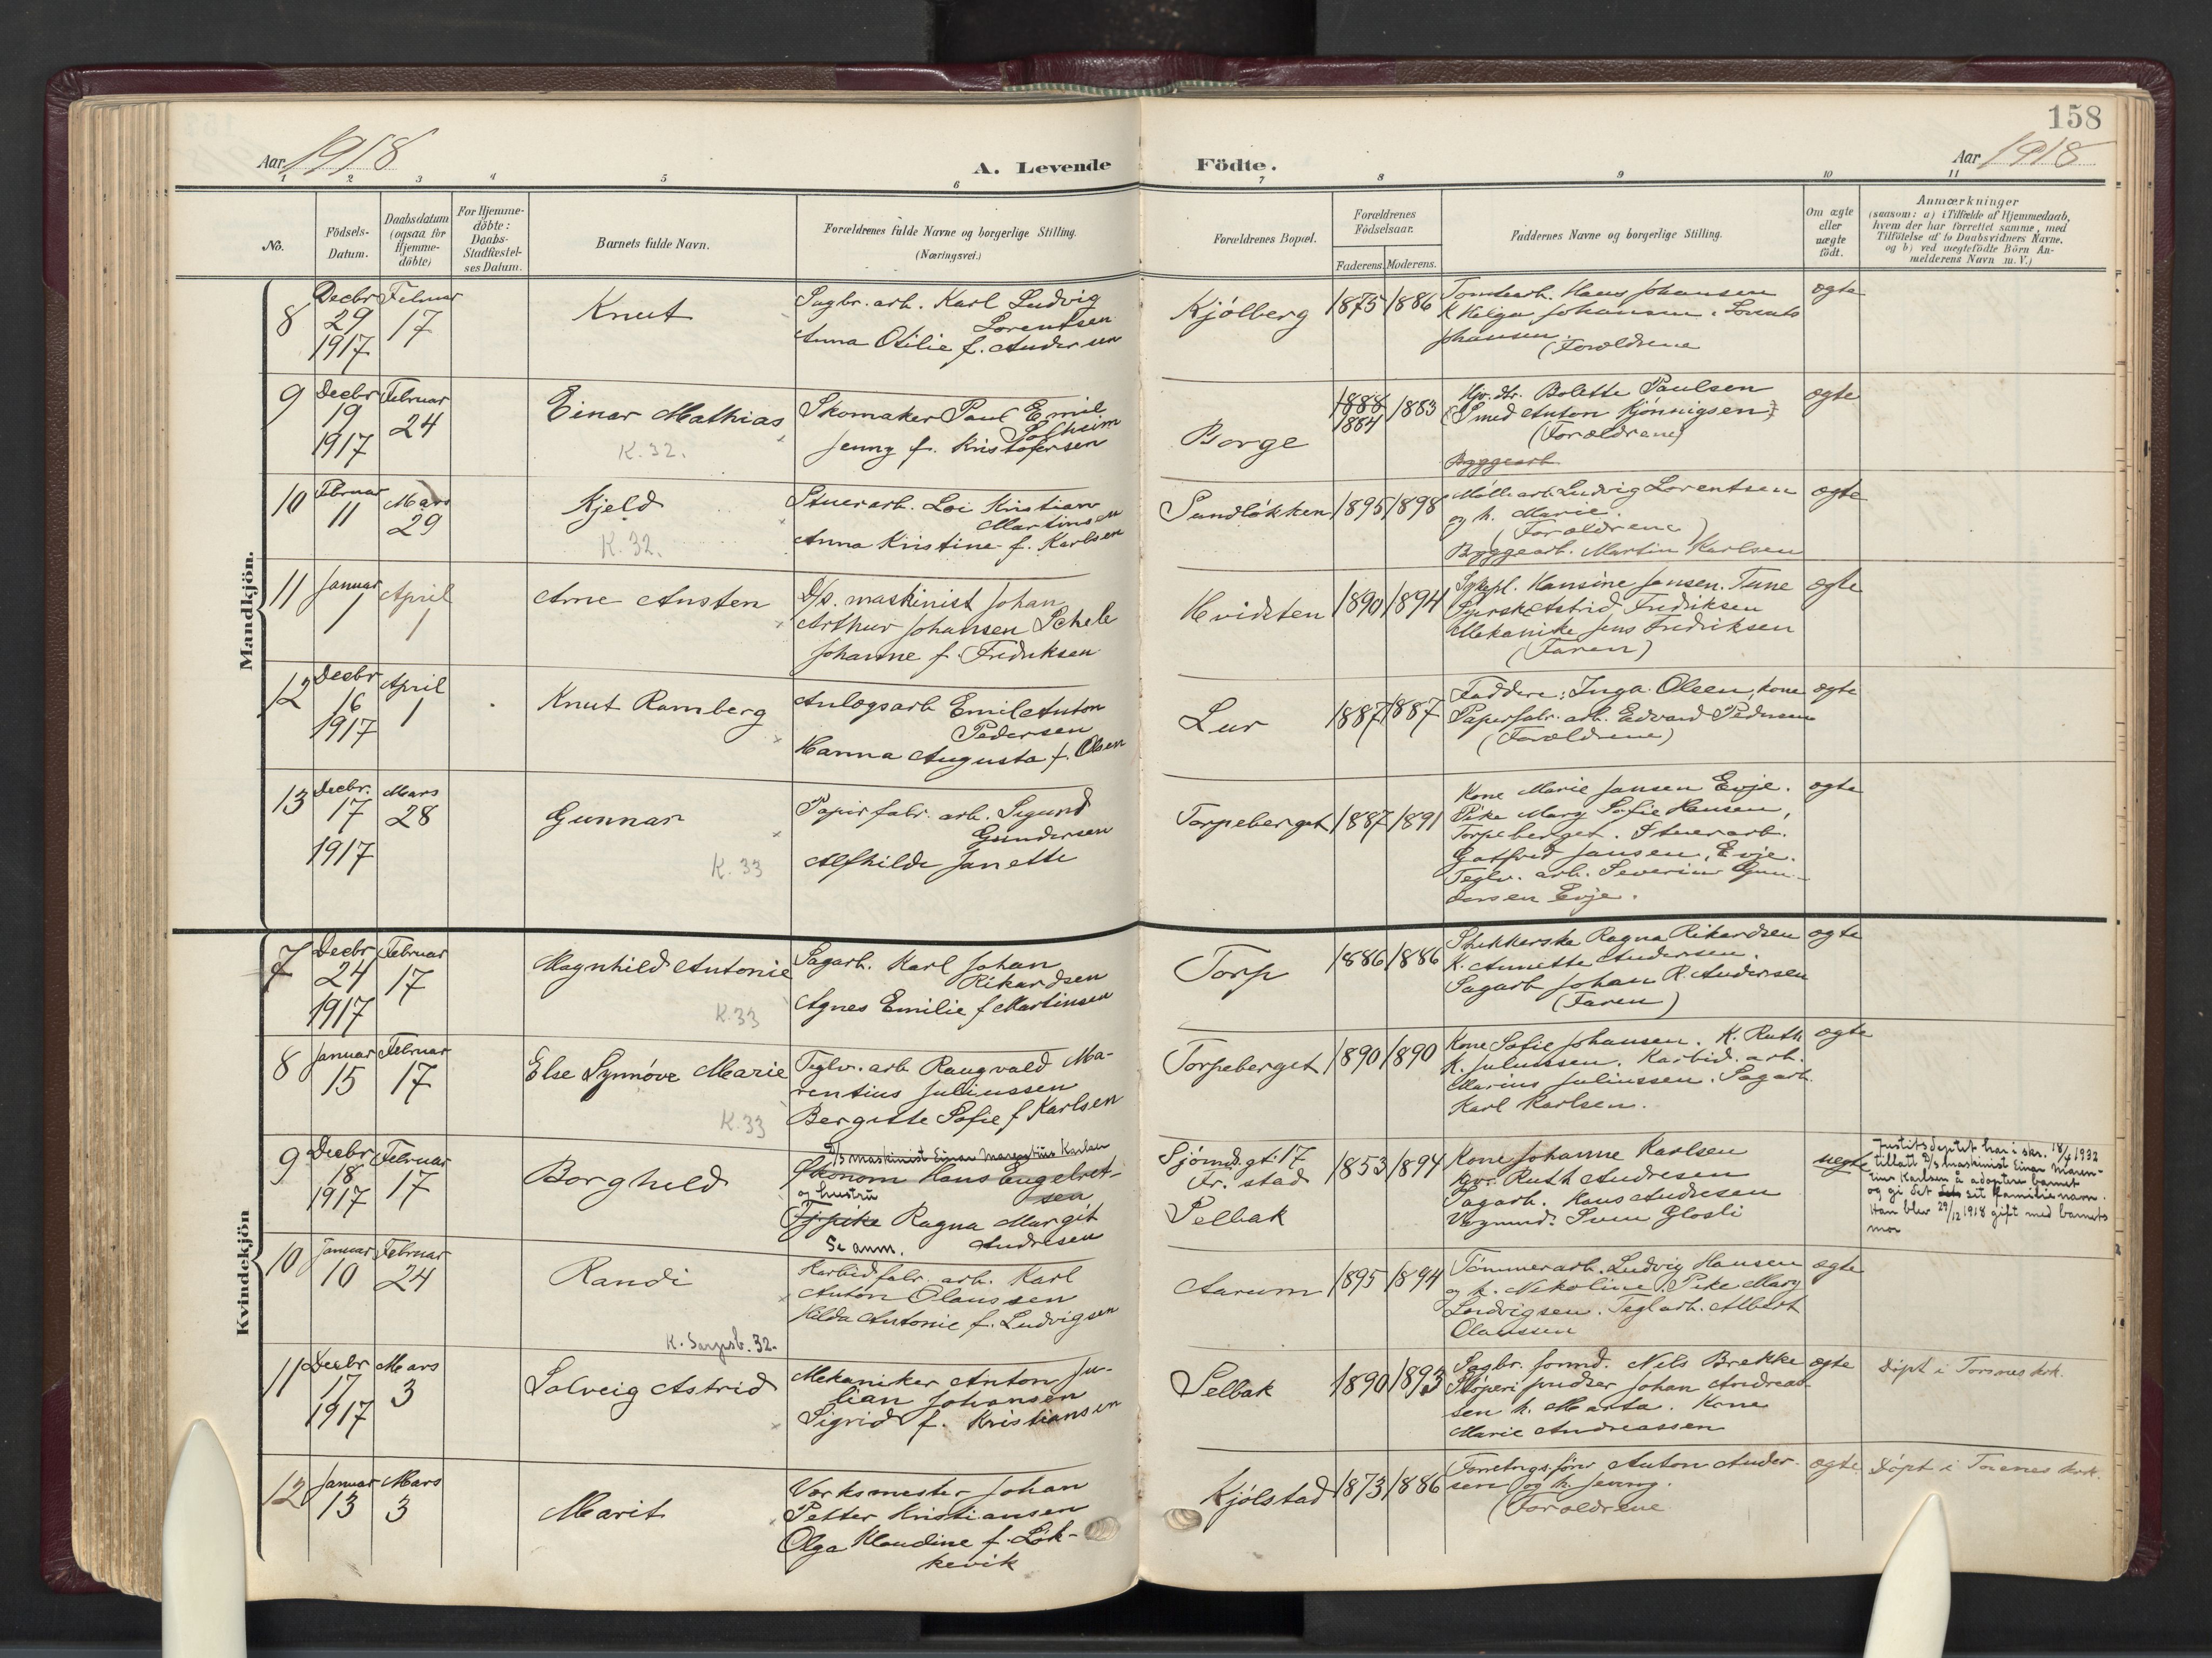 158
Aar 1918
A. Levende
Födte.
Aar 1918
1 2 3 4 5 6 7 8 9 10 11
No.
Födsels-
Datum.
Daabsdatum
(ogsaa for
Hjemme-
döbte)
For Hjemme-
döbte:
Daabs-
Stadfæstel-
ses Datum.
Barnets fulde Navn.
Forældrenes fulde Navne og borgerlige Stilling.
(Næringsvei.)
Forældrenes Bopæl.
Forældrenes
Födselsaar.
Faderens. Moderens.
Faddernes Navne og borgerlige Stilling.
Om ægte
eller
uægte
födt.
Anmærkninger
(saasom: a) i Tilfælde af Hjemmedaab,
hvem der har forrettet samme, med
Tilföielse af to Daabsvidners Navne.
og b) ved uægtefödte Börn An-
melderens Navn m. V.)
Mandkjön.
8
Decbr
29
1917
Februar
17
Knut
Sagbr. arb. Karl Ludvig
Lorentsen
Anna Otilie f. Andersen
Kjølberg
1875
1886
Tomtearb. Hans Johansen
K. Helga Johansen.
Johansen.
(Forældrene
ægte
9
Decbr
19
1917
Februar
24
Einar Mathias
K. 32.
Skomaker Paul Emil
Solheim
Jenny f. Kristofersen
Borge
1888
1884
1883
Hjv. dtr. Bolette Paulsen
(Smed Anton Hjönnigsen)
(Forældrene)
Byggearb
ægte
10
Februar
11
Mars
29
Kjeld
K. 32.
Stuerarb. Loi Kristian
Martinsen
Anna Kristine f. Karlsen
Sundløkken
1895
1898
Møllearb. Ludvig Lorentsen
og h. Marie.
(Forældrene)
Byggearb. Martin Karlsen
ægte
11
Januar
1
April
1
Arne Austen
D/s. maskinist Johan
Arthur Johansen Schele
Johanne f. Fredriksen
Hvidsten
1890
1894
Sykepl. Hansine Jansen. Tune
Syerske Astrid Fredriksen
Mekanike Jens Fredriksen
(Faren)
ægte
12
Decbr
16
1917
April
1
Knut Ramberg
Anlægsarb Emil Anton
Pedersen
Hanna Augusta f. Olsen
Lur
1887
1887
Faddere: Inga Olsen, kone
Papirfabr. arb. Edvard Pedersen
(Forældrene)
ægte
13
Decbr.
17
1917
Mars
28
Gunnar
K. 33
Papirfabr. arb. Sigurd
Gundersen
Alfhilde Janette
Torpeberget
1887
1891
Kone Marie Jansen Evje.
Pike Mary Sofie Hansen,
Torpeberget. Stuerarb.
Gotfred Jansen, Evje.
Teglv. arb. Severin Gun-
dersen Evje.
ægte
Kvindekjön
7
Decbr
24
1917
Februar
17
Magnhild Antonie
K. 33
Sagarb. Karl Johan
Rikardsen
Agnes Emilie f Martinsen
Torp
1886
1886
Strikkerske Ragna Rikardsen
K. Annette Andersen.
Sagarb Johan R. Andersen
(Faren)
ægte
8
Januar
15
Februar
17
Else Synnöve Marie
K. 33
Teglv. arb Raugvald Ma-
rentius Juliussen
Bergitte Sofie f Karlsen
Torpeberget
1890
1890
Kone Sofie Johansen. K. Ruth
K. Juliussen. Karbid. arb.
Marius Juliussen. Sagarb.
Karl Karlsen.
ægte
9
Decbr
18
1917
Februar
17
Borghild
D/s maskinist Einar Marentius Karlsen
Ökonom Hans Engelret-
sen
og hustru
Tj. pike Ragna Margit
Andresen
Se anm.
Sjömd. gt. 17
Fr. stad
Selbak
1853
1894
Kone Johanne Karlsen
hjv. Ruth Andresen
Sagarb. Hans Andresen
Vognmd. Sven Glosli
uægte
Justitsdeptet har i skr. 18/4 1932
tillatt D/s maskinist Einar Maren-
tius Karlsen å adoptere barnet
og gi det sit familienavn.
Han blev 29/12 1918 gift med barnets
mor
10
Januar
10
Februar
24
Randi
K. Sarpsb. 32.
Karbidfabr. arb. Karl
Anton Olaussen
Hilda Antonie f. Ludvigsen
Aarum
1895
1894
Tömmerarb. Ludvig Hansen
og h. Nikoline. Pike Mary
Ludvigsen. Teglarb. Albert
Olaussen
ægte
11
Decbr
17
1917
Mars
3
Solveig Astrid
Mekaniker Anton Ju-
lian Johansen
Sigrid f. Kristiansen
Selbak
1890
1893
Sagbr. formd. Nils Brekke
Stöperipudser Johan Andreas-
sen h. Marta. Kone
Marie Andreassen
ægte
Döpt i Torsnes krk.
12
Januar
13
Mars
3
Marit
Verksmester Johan
Petter Kristiansen
Olga Klaudine f. Lök-
kevik
Kjölstad
1873
1886
Forretngsförer Anton Ander-
sen og h. Jenny.
(Forældrene
ægte
Döpt i Torsnes krk.